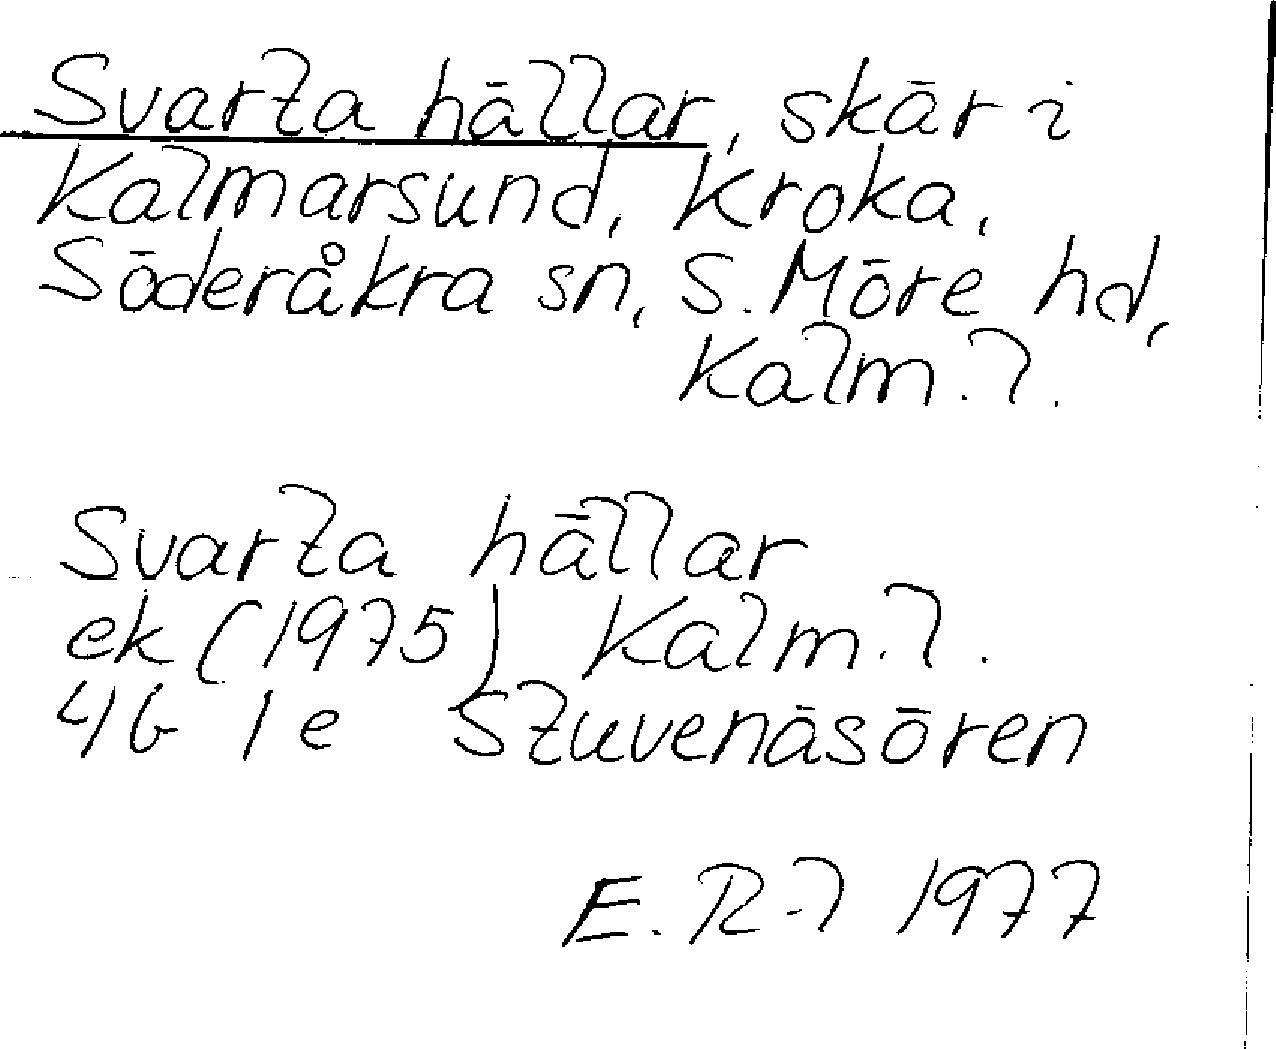 Svarta hällar, skär i
Kalmarsund, Kroka,
Söderåkra sn, S. Möre hd,
Kalm. l.
Svarta hällar
ek (1975) Kalm. l.
4G 1e Stuvenäsören
E. R-l 1977